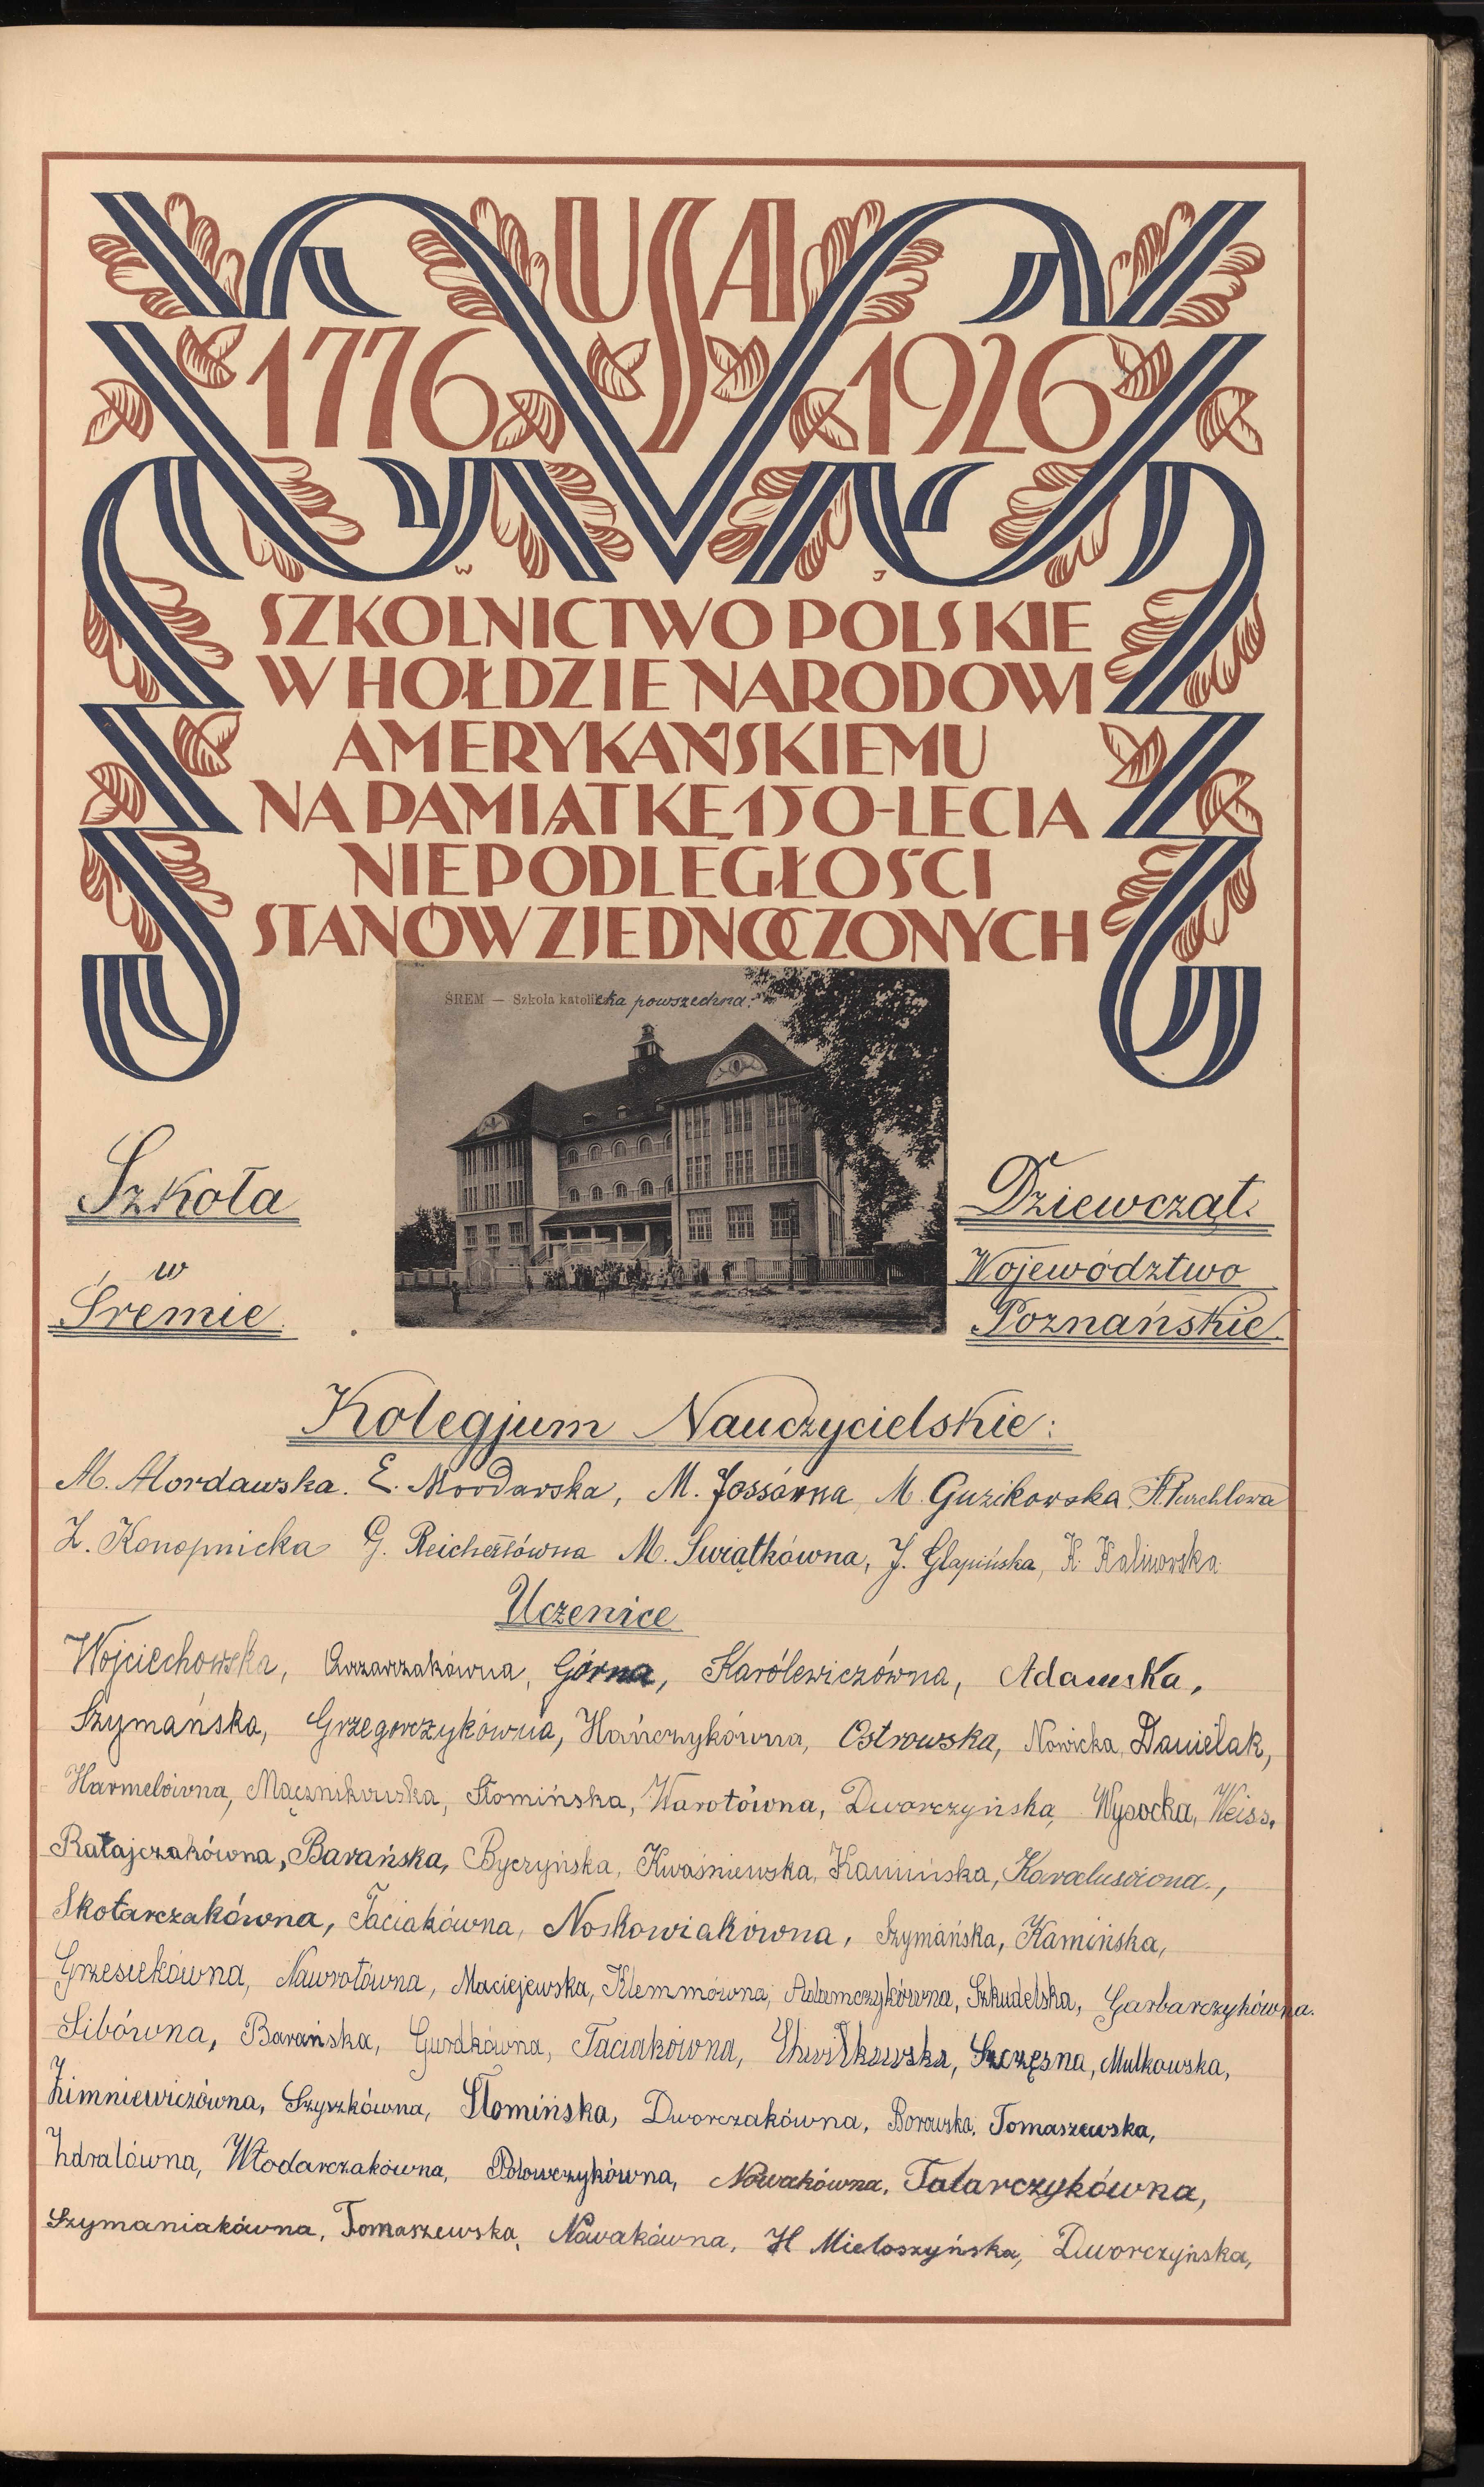 USA
1776 1926
W J
SZKOLNICTWO POLSKIE
W HOŁDZIE NARODOWI
AMERYKAŃSKIEMU
NA PAMIĄTKĘ 150-LECIA
NIEPODLEGŁOŚCI
STANÓW ZJEDNOCZONYCH
ŚREM — Szkoła katolicka powszechna.
Szkoła
w
Śremie.
Dziewcząt.
Województwo
Poznańskie
Kolegjum Nauczycielskie:
M. Mordawska. E. Mordawska, M. Jossówna M. Guzikowska St. Purchlowa
Z. Konopnicka G. Reichertówna M. Świątkówna, J. Glapińska, K. Kalinowska
Uczenice
Wojciechowska, Górna, Karólewiczówna, Adamska,
Szymańska, Grzegorczykówna, Hańczykówna, Ostrowska, Nowicka, Danielak,
Harmelówna, Mącznikowska, Słomińska, Warotówna, Dworczyńska, Wysocka, Weiss,
Ratajczakówna, Barańska, Byczyńska, Kwaśniewska, Kamińska, Karalusówna.,
Skotarczakówna, Taciakówna, Noskowiakówna, Szymańska, Kamińska,
Grzesiekówna, Nawrotówna, Maciejewska, Klemmówna, Adamczykówna, Szkudelska, Garbarczykówna.
Sibówna, Barańska, Gurdkówna, Taciakówna, Szczęsna, Mulkowska,
Zimniewiczówna, Szyszkówna, Słomińska, Dworczakówna, Borowska, Tomaszewska,
Zdralówna, Włodarczakówna, Połowczykówna, Nowakówna, Tatarczykówna,
Szymaniakówna, Tomaszewska, Nowakówna, H Mieloszyńska, Dworczyńska,